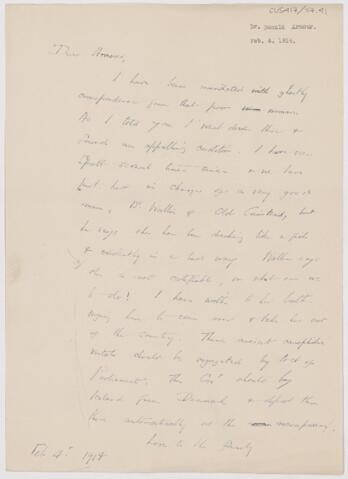 CUS417/57.91
Dr. Donald Armour.
Feb. 4. 1914.
Dear
I have been inundated with ghastly
correspondence from that poor woman
As I told you I went down there &
found an appalling condition. I have
several times since & we have
put her in charge of a very good
man, Dr. Walter of Old but
he says she has been drinking like a fish
& evidently in a bad way. Walter says
she is not certifiable, so what are we
to do! I have written to her
urging him to come over & take her out
of the country. These ancient
should be segregated by Act of
Parliament. The Govt should buy
Iceland from Denmark & deport them
there automatically at the menopause.
Love to the family
Feb 4th 1914